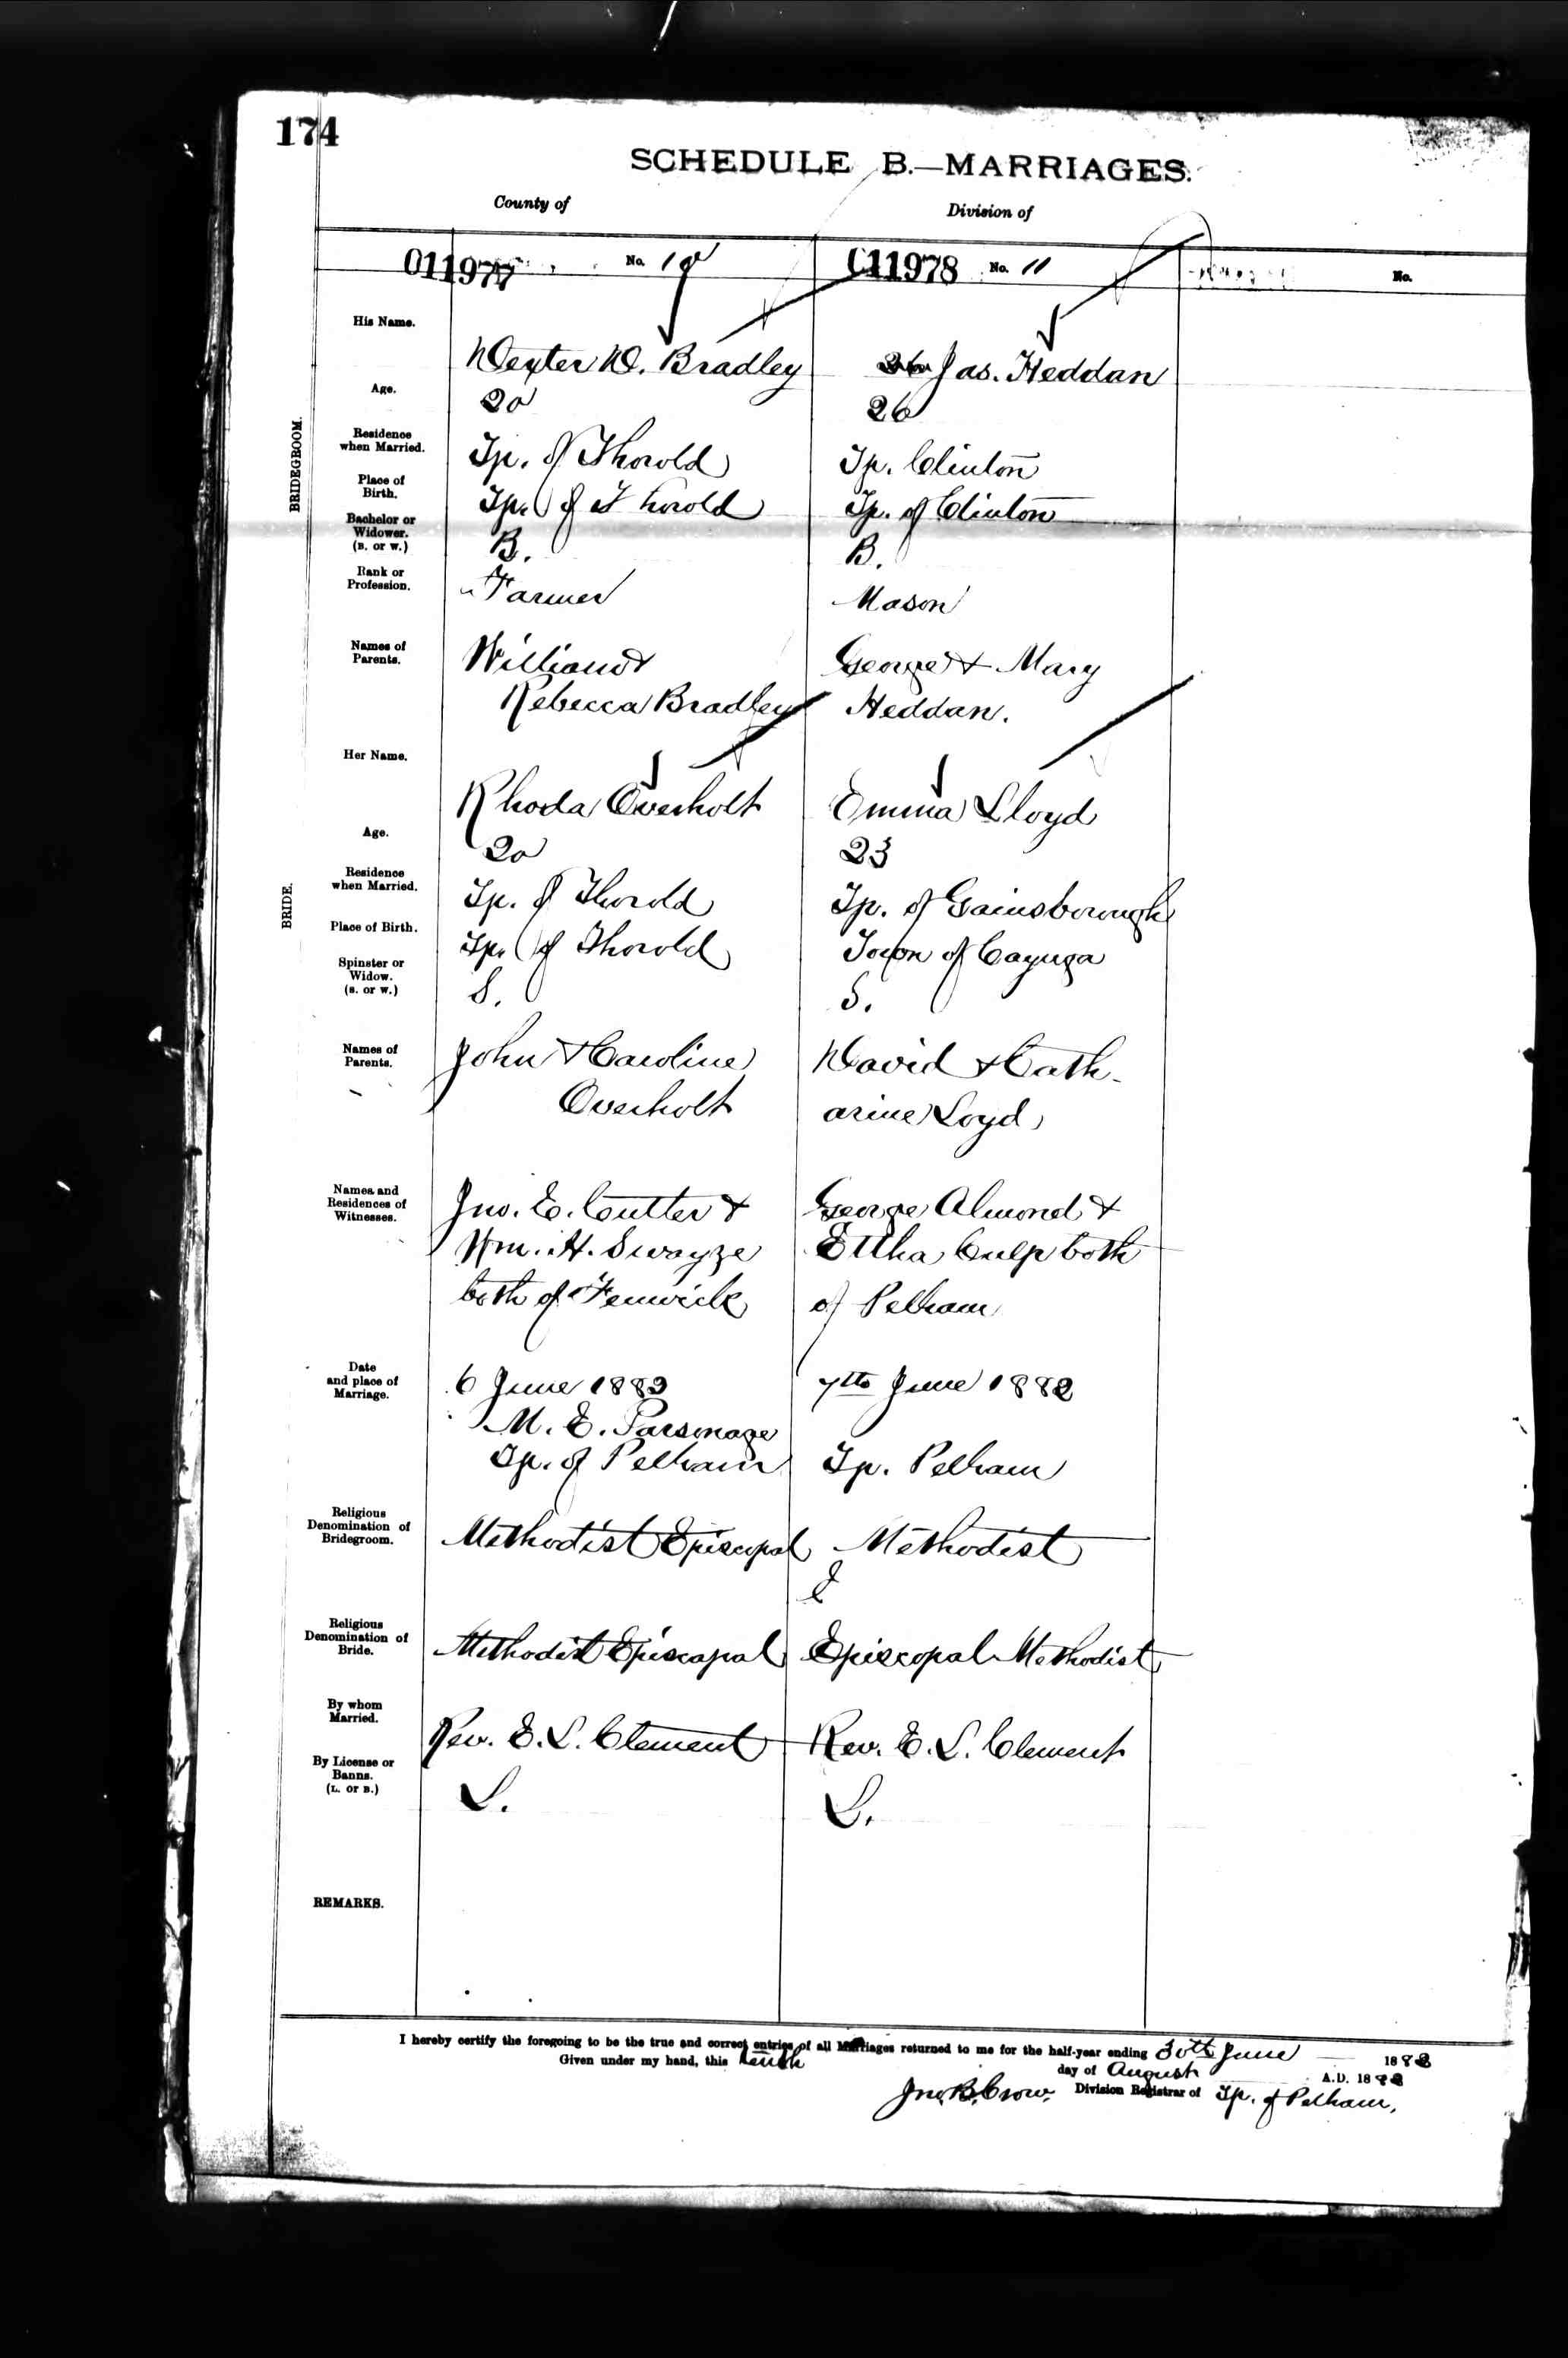 174
SCHEDULE B.—MARRIAGES.
County of
Division of
011977 No. 10
011978 No. 11
No.
BRIDEGROOM.
His Name.
Dexter D. Bradley
Jas. Heddan
Age.
20
26
Residence when Married.
Tp. of Thorold
Tp. Clinton
Place of Birth.
Tp. of Thorold
Tp. of Clinton
Bachelor or Widower. (B. or W.)
B.
B.
Rank or Profession.
Farmer
Mason
Names of Parents.
William &
Rebecca Bradley
George & Mary
Heddan.
BRIDE.
Her Name.
Rhoda Overholt
Emma Lloyd
Age.
20
23
Residence when Married.
Tp. of Thorold
Tp. of Gainsborough
Place of Birth.
Tp. of Thorold
Town of Cayuga
Spinster or Widow. (S. or W.)
S.
S.
Names of Parents.
John & Caroline
Overholt
David & Cath-
arine Loyd
Names and Residences of Witnesses.
Jno. E. Cutler &
Wm. H. Swayze
both of Fenwick
George Almond &
Ettha Culp both
of Pelham
Date and place of Marriage.
6 June 1883
M. E. Parsonage
Tp. of Pelham
7th June 1882
Tp. Pelham
Religious Denomination of Bridegroom.
Methodist Episcopal
Methodist
Religious Denomination of Bride.
Methodist Episcopal
Episcopal Methodist
By whom Married.
Rev. E. L. Clement
Rev. E. L. Clement
By License or Banns. (L. or B.)
L.
L.
REMARKS.
I hereby certify the foregoing to be the true and correct entries of all Marriages returned to me for the half-year ending 30th June 188
Given under my hand, this tenth day of August A.D. 188
Jno. B. Crow. Division Registrar of Tp. of Pelham.